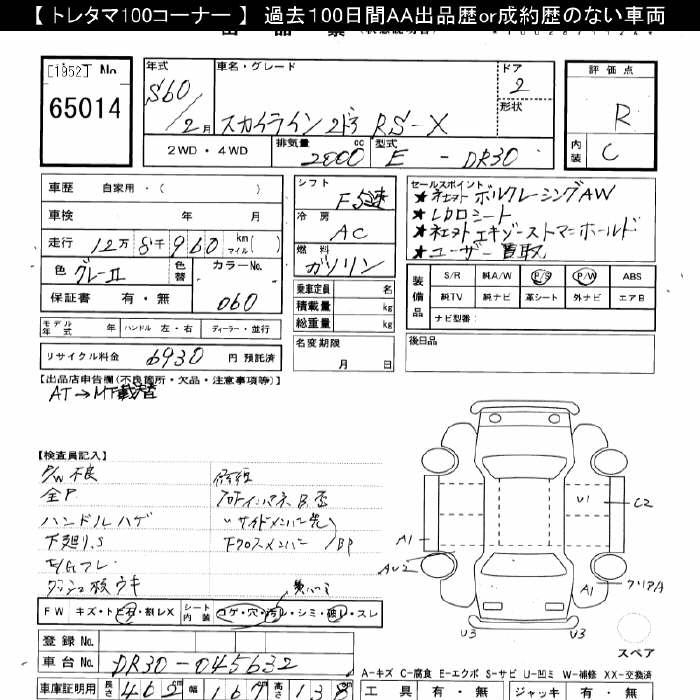 【 トレタマ100コーナー 】 過去100日間AA出品歴or成約歴のない車両
[1952] No
65014
年式 S60 / 2月
車名・グレード
スカイライン 2ドア RS-X
ドア 2
形状
評価点
R
内装 C
2WD・4WD
排気量 2000 cc
型式 E - DR30
車歴 自家用・( )
車検 年 月
走行 12万 8千 960 km マイル( )
色 グレーII 色替
カラーNo. 060
保証書 有・無
モデル年式 年 ハンドル 左・右 ディーラー・並行
リサイクル料金 6930 円 預託済
シフト F5速
冷房 AC
燃料 ガソリン
乗車定員 名
積載量 kg
総重量 kg
名変期限
月 日
セールスポイント
★社外ボルクレーシングAW
★レカロシート
★社外エキゾーストマニホールド
★ユーザー買取
装備品
S/R 純A/W P/S P/W ABS
純TV 純ナビ 革シート 外ナビ エアB
ナビ型番:
後日品
【出品店申告欄(不良箇所・欠品・注意事項等)】
AT→MT載替
【検査員記入】
P/W不良
全P
ハンドルハゲ
下廻りS
ダッシュ板ウキ
修復
フロントインパネB歪
〃サイドメンバー先
下クロスメンバー/BP
FW キズ・トビ石・割レX シート内装 コゲ・穴・汚レ・シミ・破レ・スレ
登録No.
車台No. DR30-045632
車庫証明用 長さ 462 cm 幅 167 cm 高さ 138
U1
C2
A1
AU2
A1
U3
U3
スペア
A-キズ C-腐食 E-エクボ S-サビ U-凹ミ W-補修 XX-交換済
工具 有・無 ジャッキ 有・無